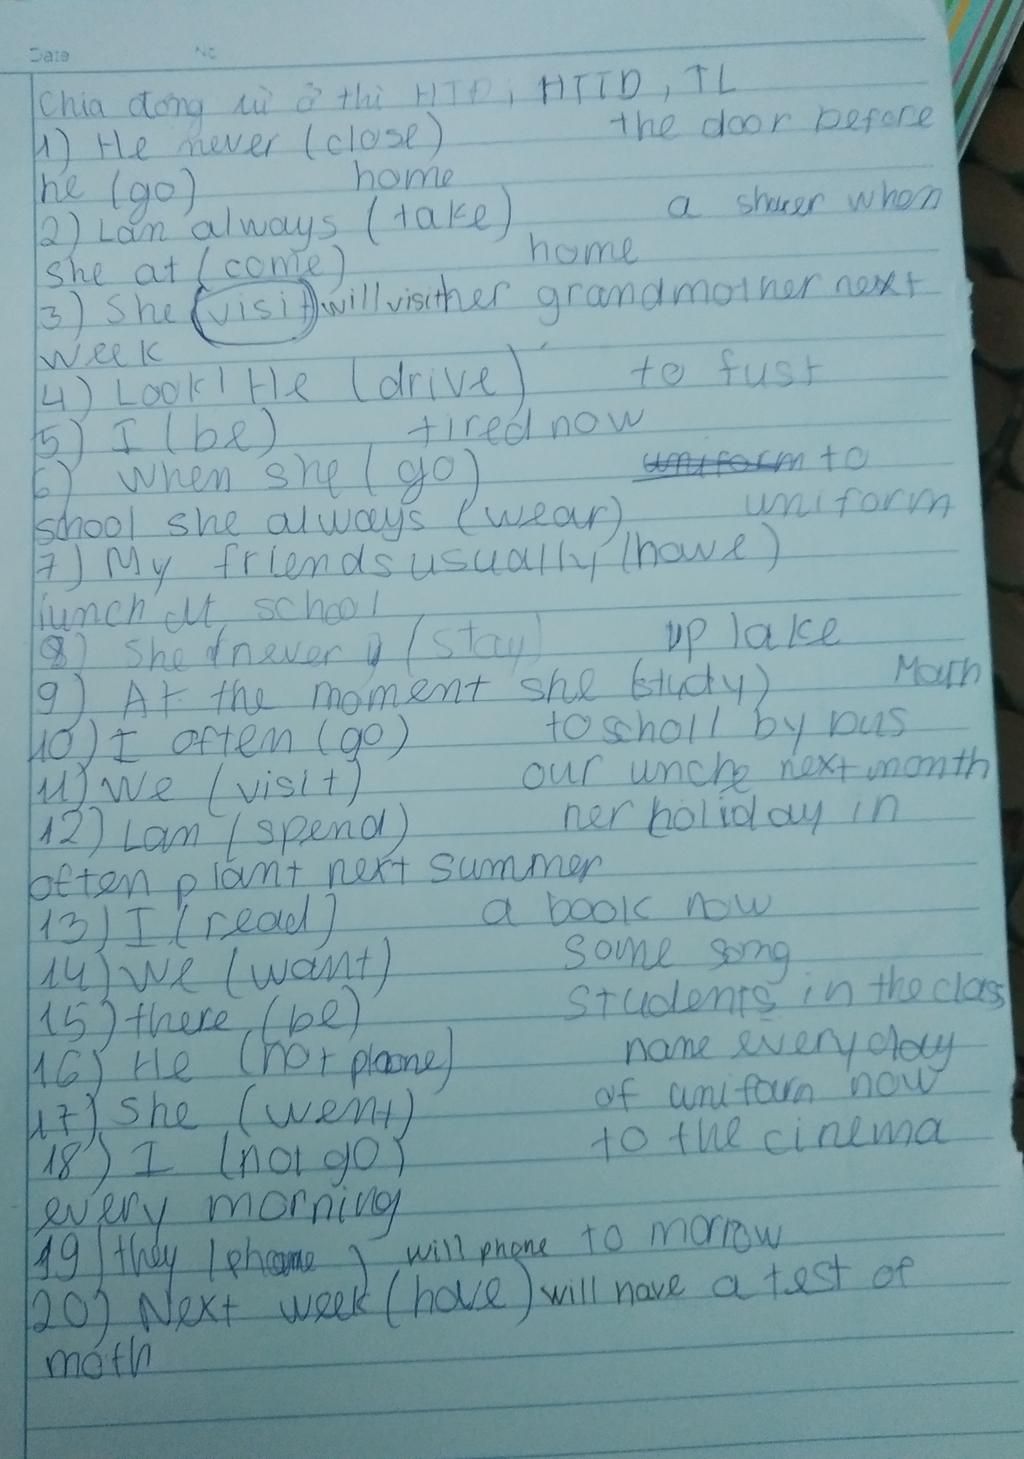 Date No
Chia động từ ở thì HTĐ, HTTD, TL
1) He never (close) the door before
he (go) home
2) Lan always (take) a shwer when
she at (come) home
3) She (visit) will visit her grandmother next
week
4) Look! He (drive) to fust
5) I (be) tired now
6) when she (go) uniform to
school she always (wear) uniform
7) My friends usually (have)
lunch at school
8) She never (stay) up lake
9) At the moment she (study) Math
10) I often (go) to scholl by bus
11) We (visit) our unche next month
12) Lan (spend) her holiday in
often plant next summer
13) I (read) a book now
14) We (want) some song
15) there (be) students in the class
16) He (not phone) name everyday
17) She (went) of uniform now
18) I (not go) to the cinema
every morning
19) they (phone) will phone to morrow
20) Next week (have) will have a test of
math